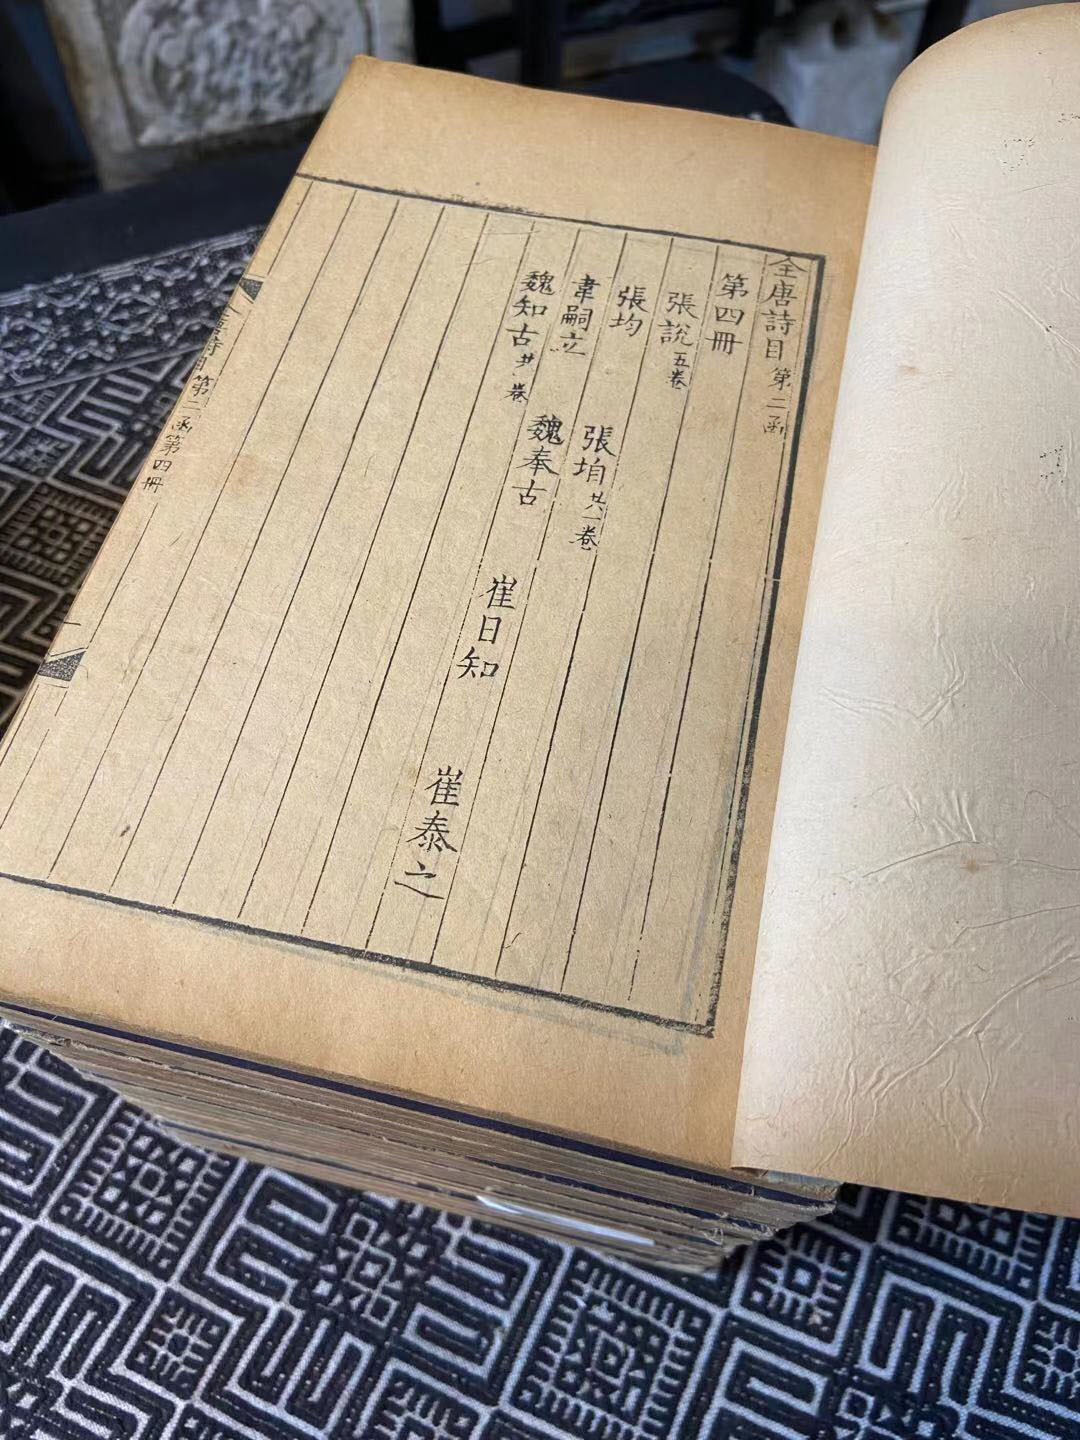 全唐詩目 第二函
第四冊
張說 五卷
張均 張垍 共一卷
韋嗣立 魏奉古 崔日知 崔泰之
魏知古 共一卷
全唐詩目第二函第四冊